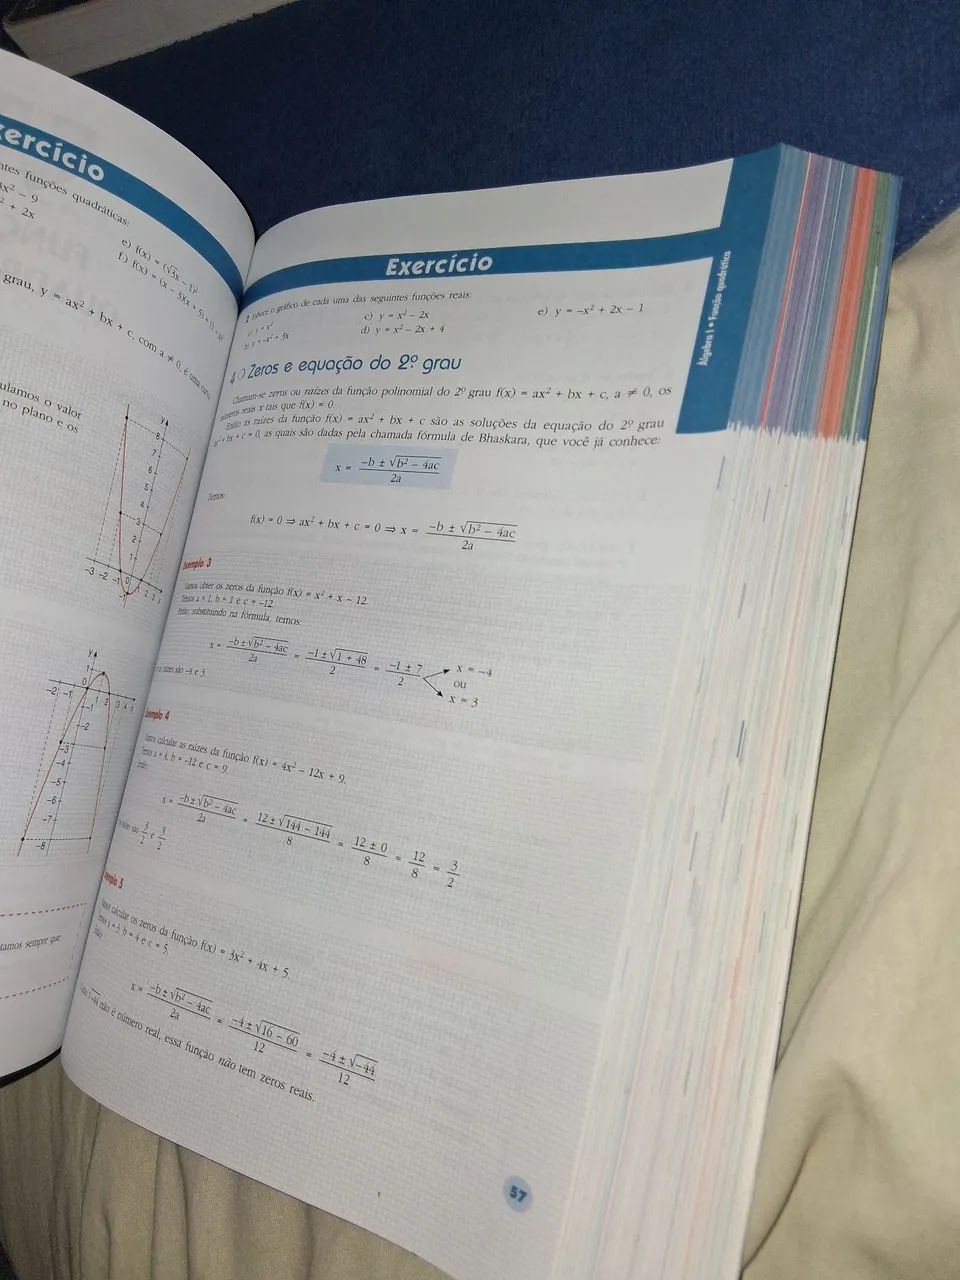 ercício
ntes funções quadráticas:
3x² – 9
² + 2x
e) f(x) = (√3x – 1)²
f) f(x) = (x – 3)(x + 5)
grau, y = ax² + bx + c, com a ≠ 0, é uma curva
ulamos o valor
no plano e os
y
8
7
6
5
4
3
2
1
–3 –2 –1 0 1 2 3
–1
y
1
0
–2 –1 1 2 3 4 5
–2
–3
–4
–5
–6
–7
–8
tamos sempre que
Exercício
1 Esboce o gráfico de cada uma das seguintes funções reais:
a) y = x²
c) y = x² – 2x
e) y = –x² + 2x – 1
b) y = –x² + 3x
d) y = x² – 2x + 4
4 Zeros e equação do 2º grau
Chamam-se zeros ou raízes da função polinomial do 2º grau f(x) = ax² + bx + c, a ≠ 0, os
números reais x tais que f(x) = 0.
Então as raízes da função f(x) = ax² + bx + c são as soluções da equação do 2º grau
ax² + bx + c = 0, as quais são dadas pela chamada fórmula de Bhaskara, que você já conhece:
x = –b ± √b² – 4ac / 2a
Temos:
f(x) = 0 ⇒ ax² + bx + c = 0 ⇒ x = –b ± √b² – 4ac / 2a
Exemplo 3
Vamos obter os zeros da função f(x) = x² + x – 12.
Temos a = 1, b = 1 e c = –12.
Então, substituindo na fórmula, temos:
x = –b ± √b² – 4ac / 2a = –1 ± √1 + 48 / 2 = –1 ± 7 / 2
x = –4
ou
x = 3
raízes são –4 e 3.
Exemplo 4
Vamos calcular as raízes da função f(x) = 4x² – 12x + 9.
Temos a = 4, b = –12 e c = 9.
Então:
x = –b ± √b² – 4ac / 2a = 12 ± √144 – 144 / 8 = 12 ± 0 / 8 = 12 / 8 = 3 / 2
raízes são 3/2 e 3/2
Exemplo 5
Vamos calcular os zeros da função f(x) = 3x² + 4x + 5.
Temos a = 3, b = 4 e c = 5.
Então:
x = –b ± √b² – 4ac / 2a = –4 ± √16 – 60 / 12 = –4 ± √–44 / 12
√–44 não é número real, essa função não tem zeros reais.
Álgebra I • Função quadrática
57